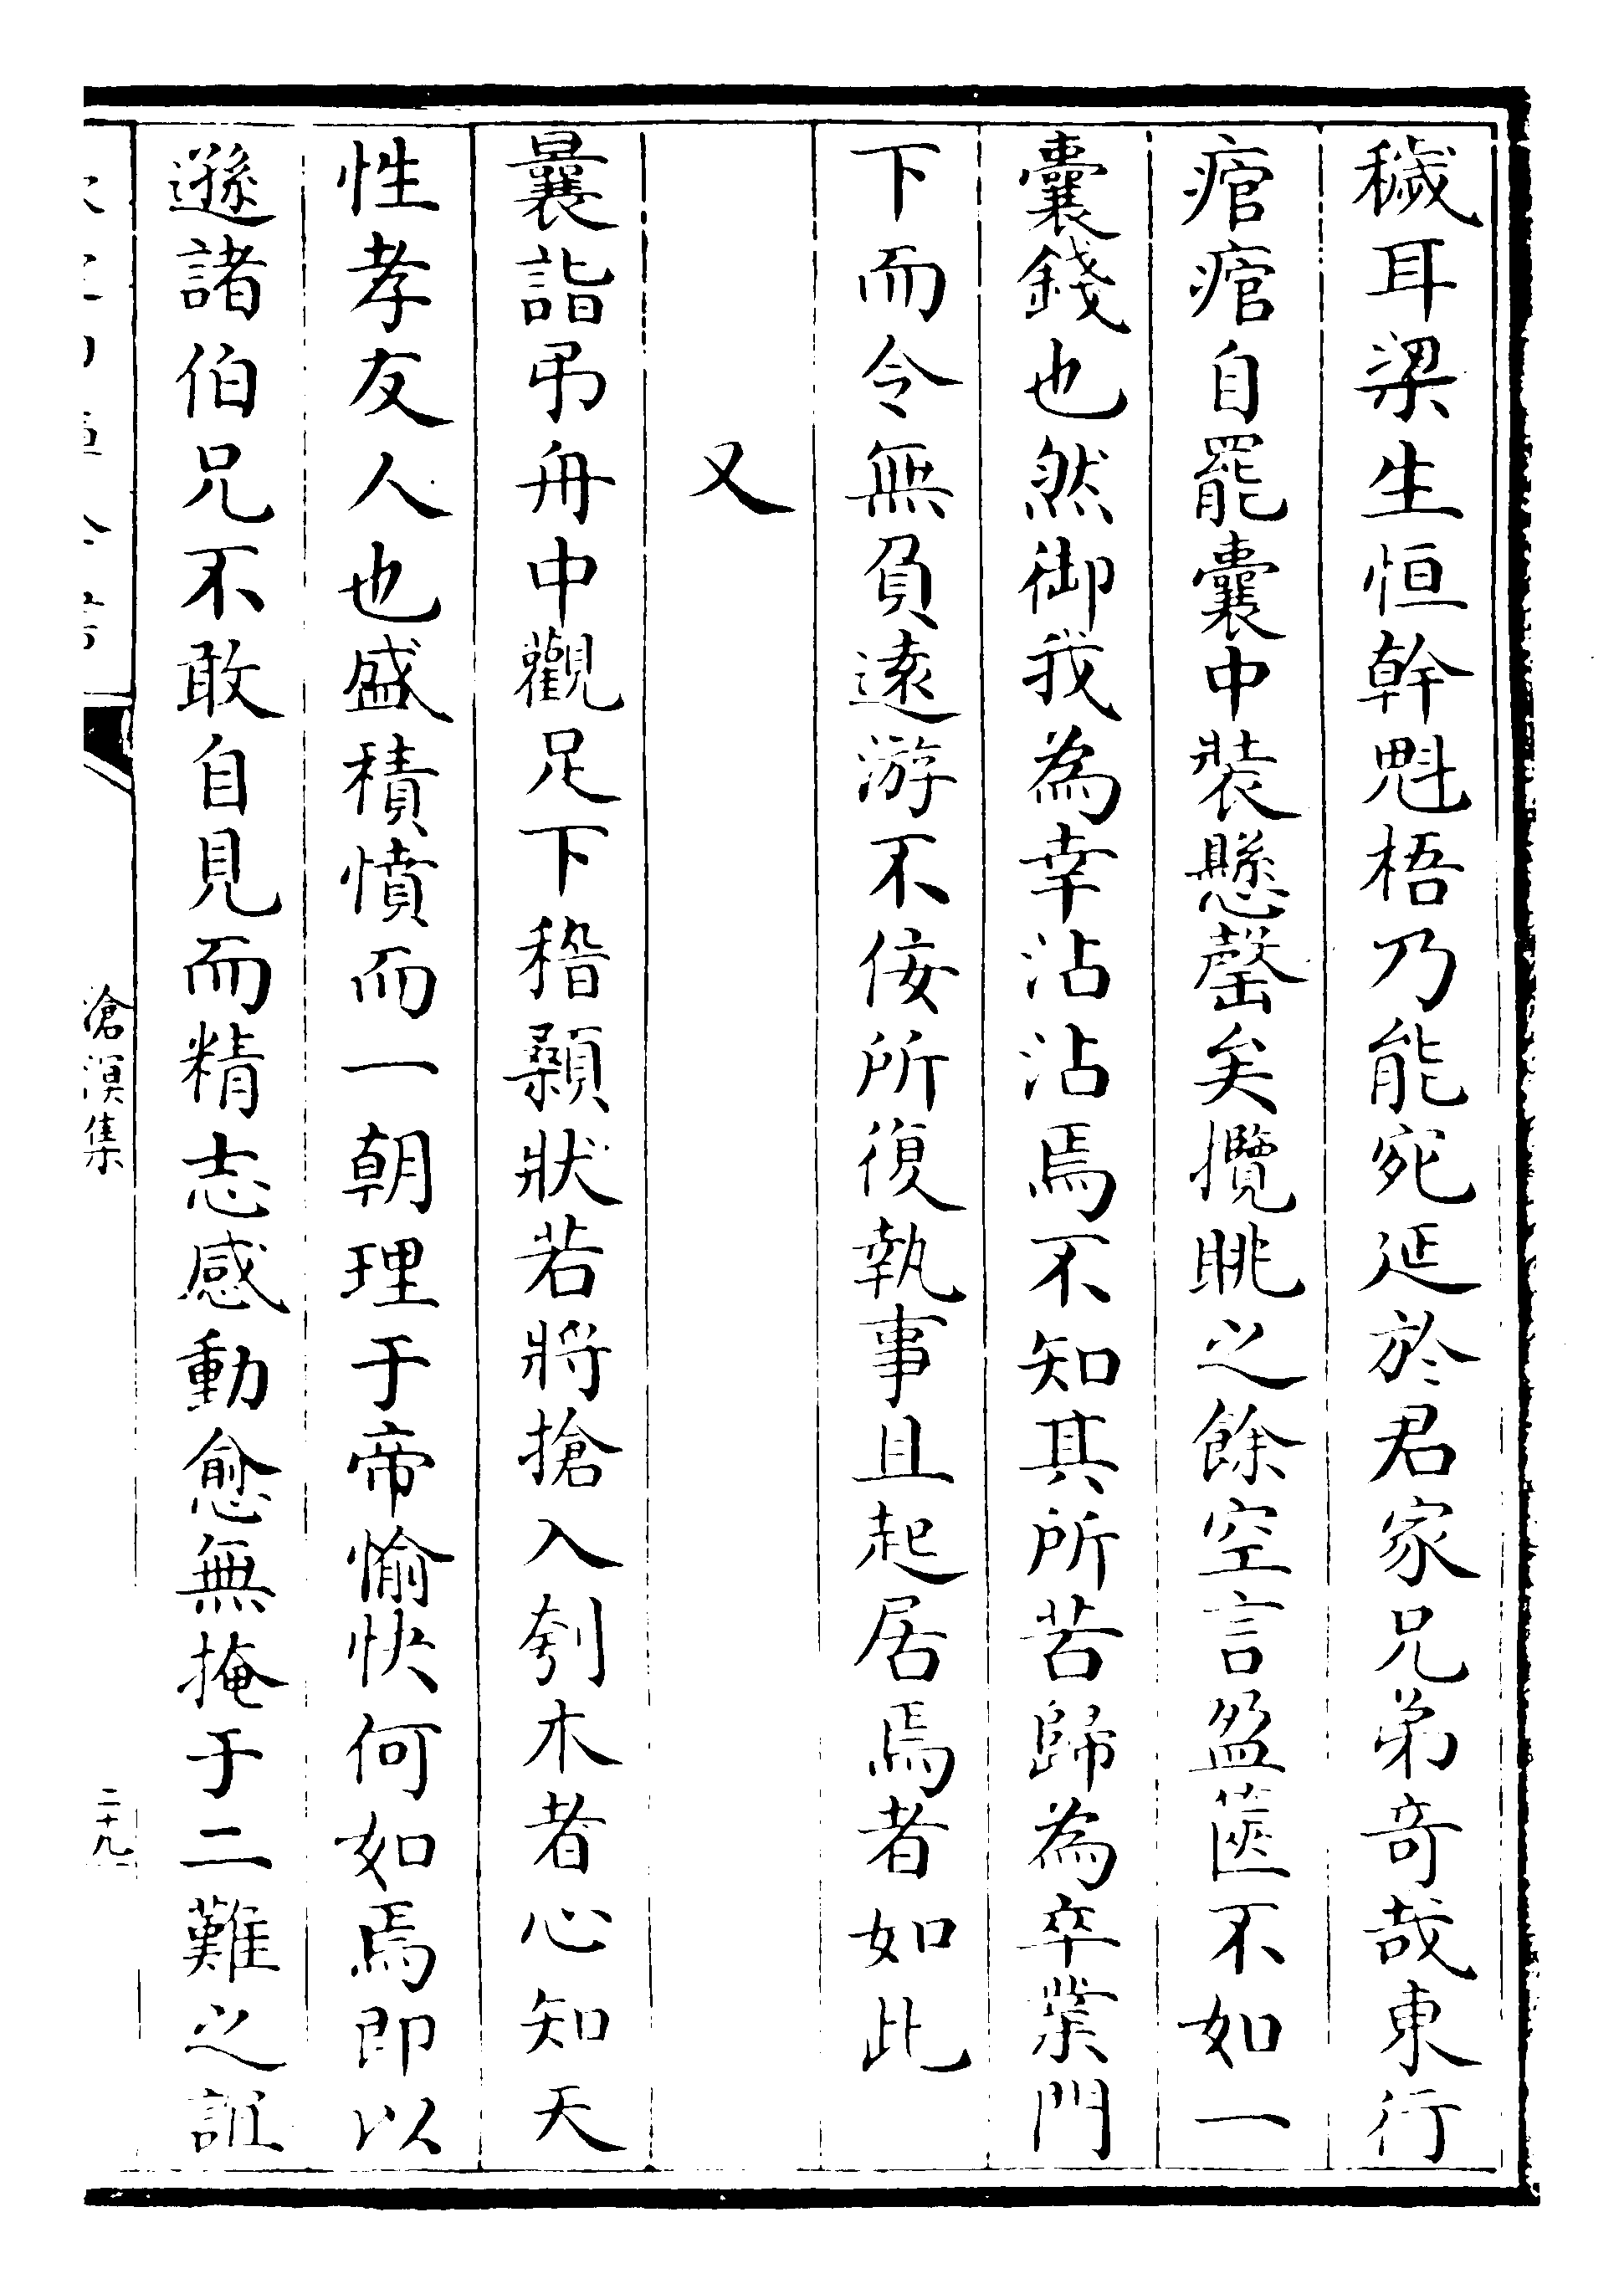 穢耳梁生恒幹魁梧乃能宛延於君家兄弟奇哉東行
痯痯自罷囊中裝懸罄矣攬眺之餘空言盈篋不如一
囊錢也然御我為幸沾沾焉不知其所苦歸為卒業門
下而令無負遠游不佞所復執事且起居焉者如此
又
曩詣弔舟中觀足下稽顙狀若將搶入刳木者心知天
性孝友人也盛積憤而一朝理于帝愉快何如焉即以
遜諸伯兄不敢自見而精志感動愈無掩于二難之誼
滄溟集
二十九